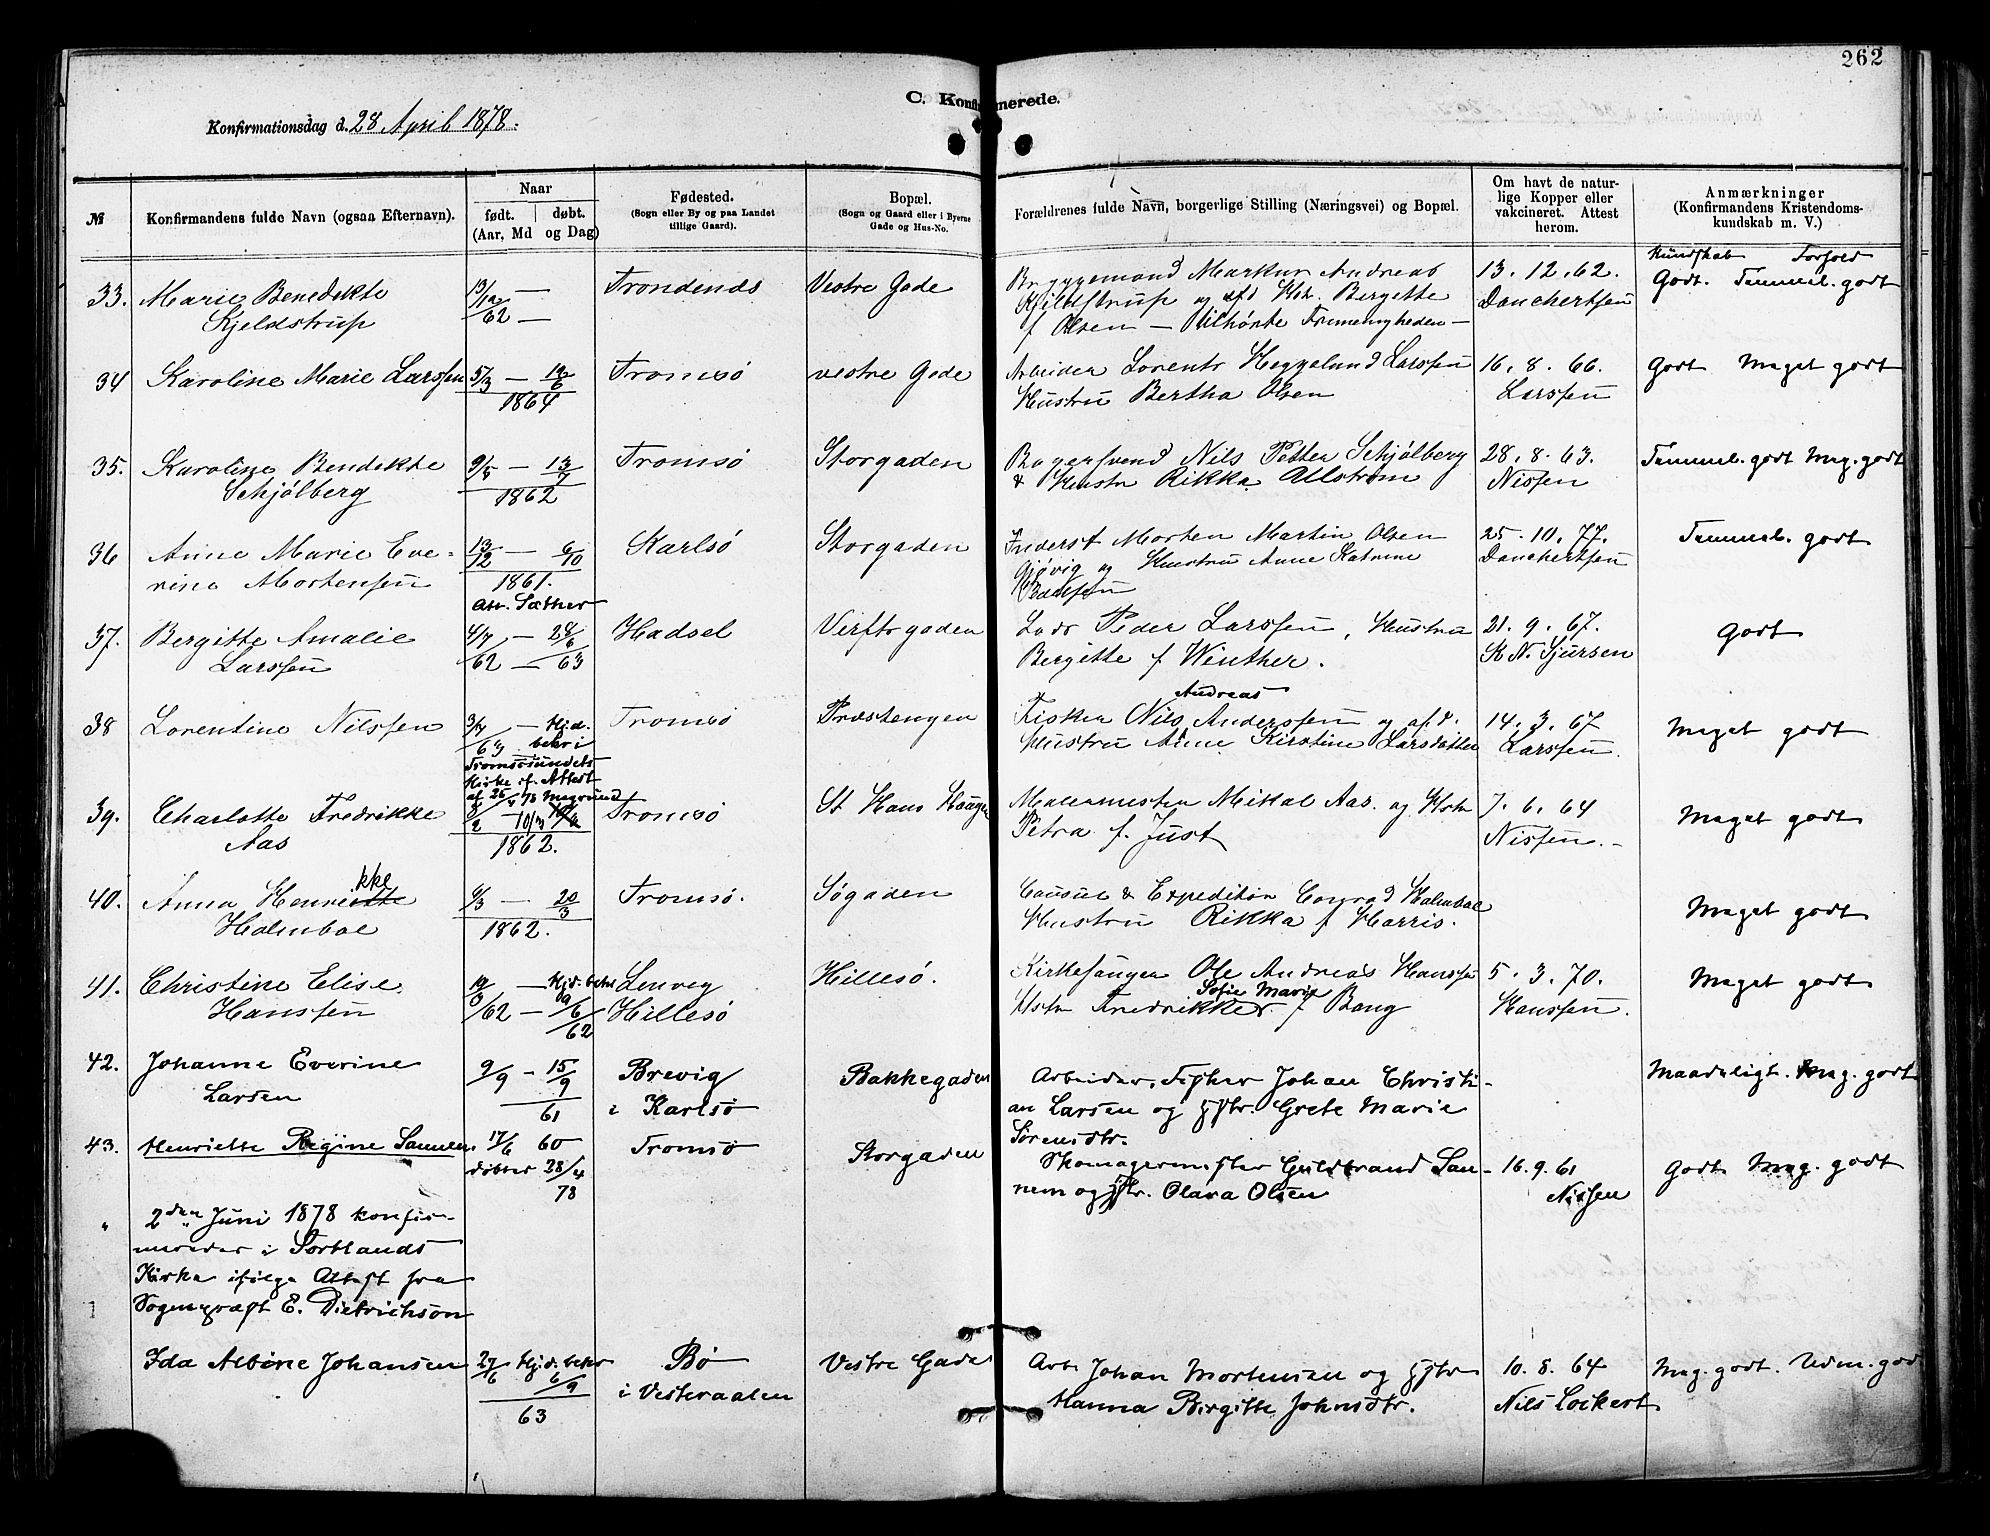 262
C. Konfirmerede.
Konfirmationsdag d. 28 April 1878.
№
Konfirmandens fulde Navn (ogsaa Efternavn).
Naar
født. døbt.
(Aar, Md og Dag)
Fødested.
(Sogn eller By og paa Landet
tillige Gaard).
Bopæl.
(Sogn og Gaard eller i Byerne
Gade og Hus-No.
Forældrenes fulde Navn, borgerlige Stilling (Næringsvei) og Bopæl.
Om havt de natur-
lige Kopper eller
vakcineret. Attest
herom.
Anmærkninger
(Konfirmandens Kristendoms-
kundskab m. V.)
Kundskab Forhold
33. Marie Benedikte Trondenes Vestre Gade Markus Andreas 13. 12. 62. Godt. Temmel. godt
Kjeldstrup 62 — Kjeldstrup og Hstr. Bergitte Danchertsen
f Olsen —
34 Karoline Marie Larssen 5/3 — Tromsø vestre Gade Arbeider Lorents Heggelund Larssen 16. 8. 66. Godt Meget godt
1864 Hustru Bertha Olsen Larssen
35. Karoline Bendikte 9/5 — 13/7 Tromsø Storgaden Bagersvend Nils Petter Schjølberg 28. 8. 63. Temmel. godt Meg. godt
Schjølberg 1862 & Hustr Rikka Allstrøm Nissen
36 Anne Marie Eve- 13/12 — 6/10 Karlsø Storgaden Inderst Morten Martin Olsen 25. 10. 77. Temmel. godt
rine Mortensen 1861. Gjøvig og Hustru Anne Katrine Danchertsen
Att. Sæther
37. Bergitte Amalie 4/7 — 24/6 Hadsel Verftsgaden Lods Peder Larssen, Hustru 21. 9. 67. Godt
Larssen 62 — 63 Bergitte f Winther. K N. Sjursen
Andreas
38 Lorentine Nilssen 3/7 — Hjd. Tromsø Præstengen Fisker Nils Anderssen og afd. 14. 3. 67 Meget godt
63 bekr i Hustru Anne Kirstine Larsdatter Larssen
Tromsøsundets
Kirke if. Attest
af 25/4 78
39. Charlotte Fredrikke Tromsø St Hans Haugen Malermester Mikal Aas. og Hstr 7. 6. 64 Meget godt
Aas 1862. Petra f. Just Nissen. —
kke
40. Anna Henriette 6/3 — 20/3 Tromsø. Søgaden Consul & Expeditør Conrad Holmboe Meget godt
Holmboe 1862. Hustru Rikka f Harris.
41. Christine Elise — Hjd. bekr Lenvig Hillesø. Kirkesanger Ole Andreas Hanssen 5. 3. 70. Meget godt
Sofie Marie
Hanssen /62 — /6 62 Hillesø Hstr Fredrikke f Bang Hanssen.
42. Johanne Everine 9/9 - 15/9 Brevig Bakkegaden Arbeider, Fisker Johan Christi- Maadeligt. Meg. godt
Larsen 61 i Karlsø an Larsen og Hstr. Grete Marie
Sørensdtr.
43. Henriette Regine Sannem. 17/6 60 Tromsø Storgaden Skomagermester Guldbrand San- 16. 9. 61 Godt Meg. godt
døbtes 28/4 78 nem og Hstr. Olava Olsen Nissen
„ 2den Juni 1878 konfir-
meredes i Sortlands
Kirke ifølge Attest fra
Sogneprest E. Dietrichson
Ida Albine Johansen 27/6 Hjd. bekr 6/9 Bø Vestre Gade Arb. Johan Mortensen og Hstr 10. 8. 64 Meg. godt. Udm. godt
63 i Vesteraalen Hanna Birgitte Johnsdtr. Nils Lockert